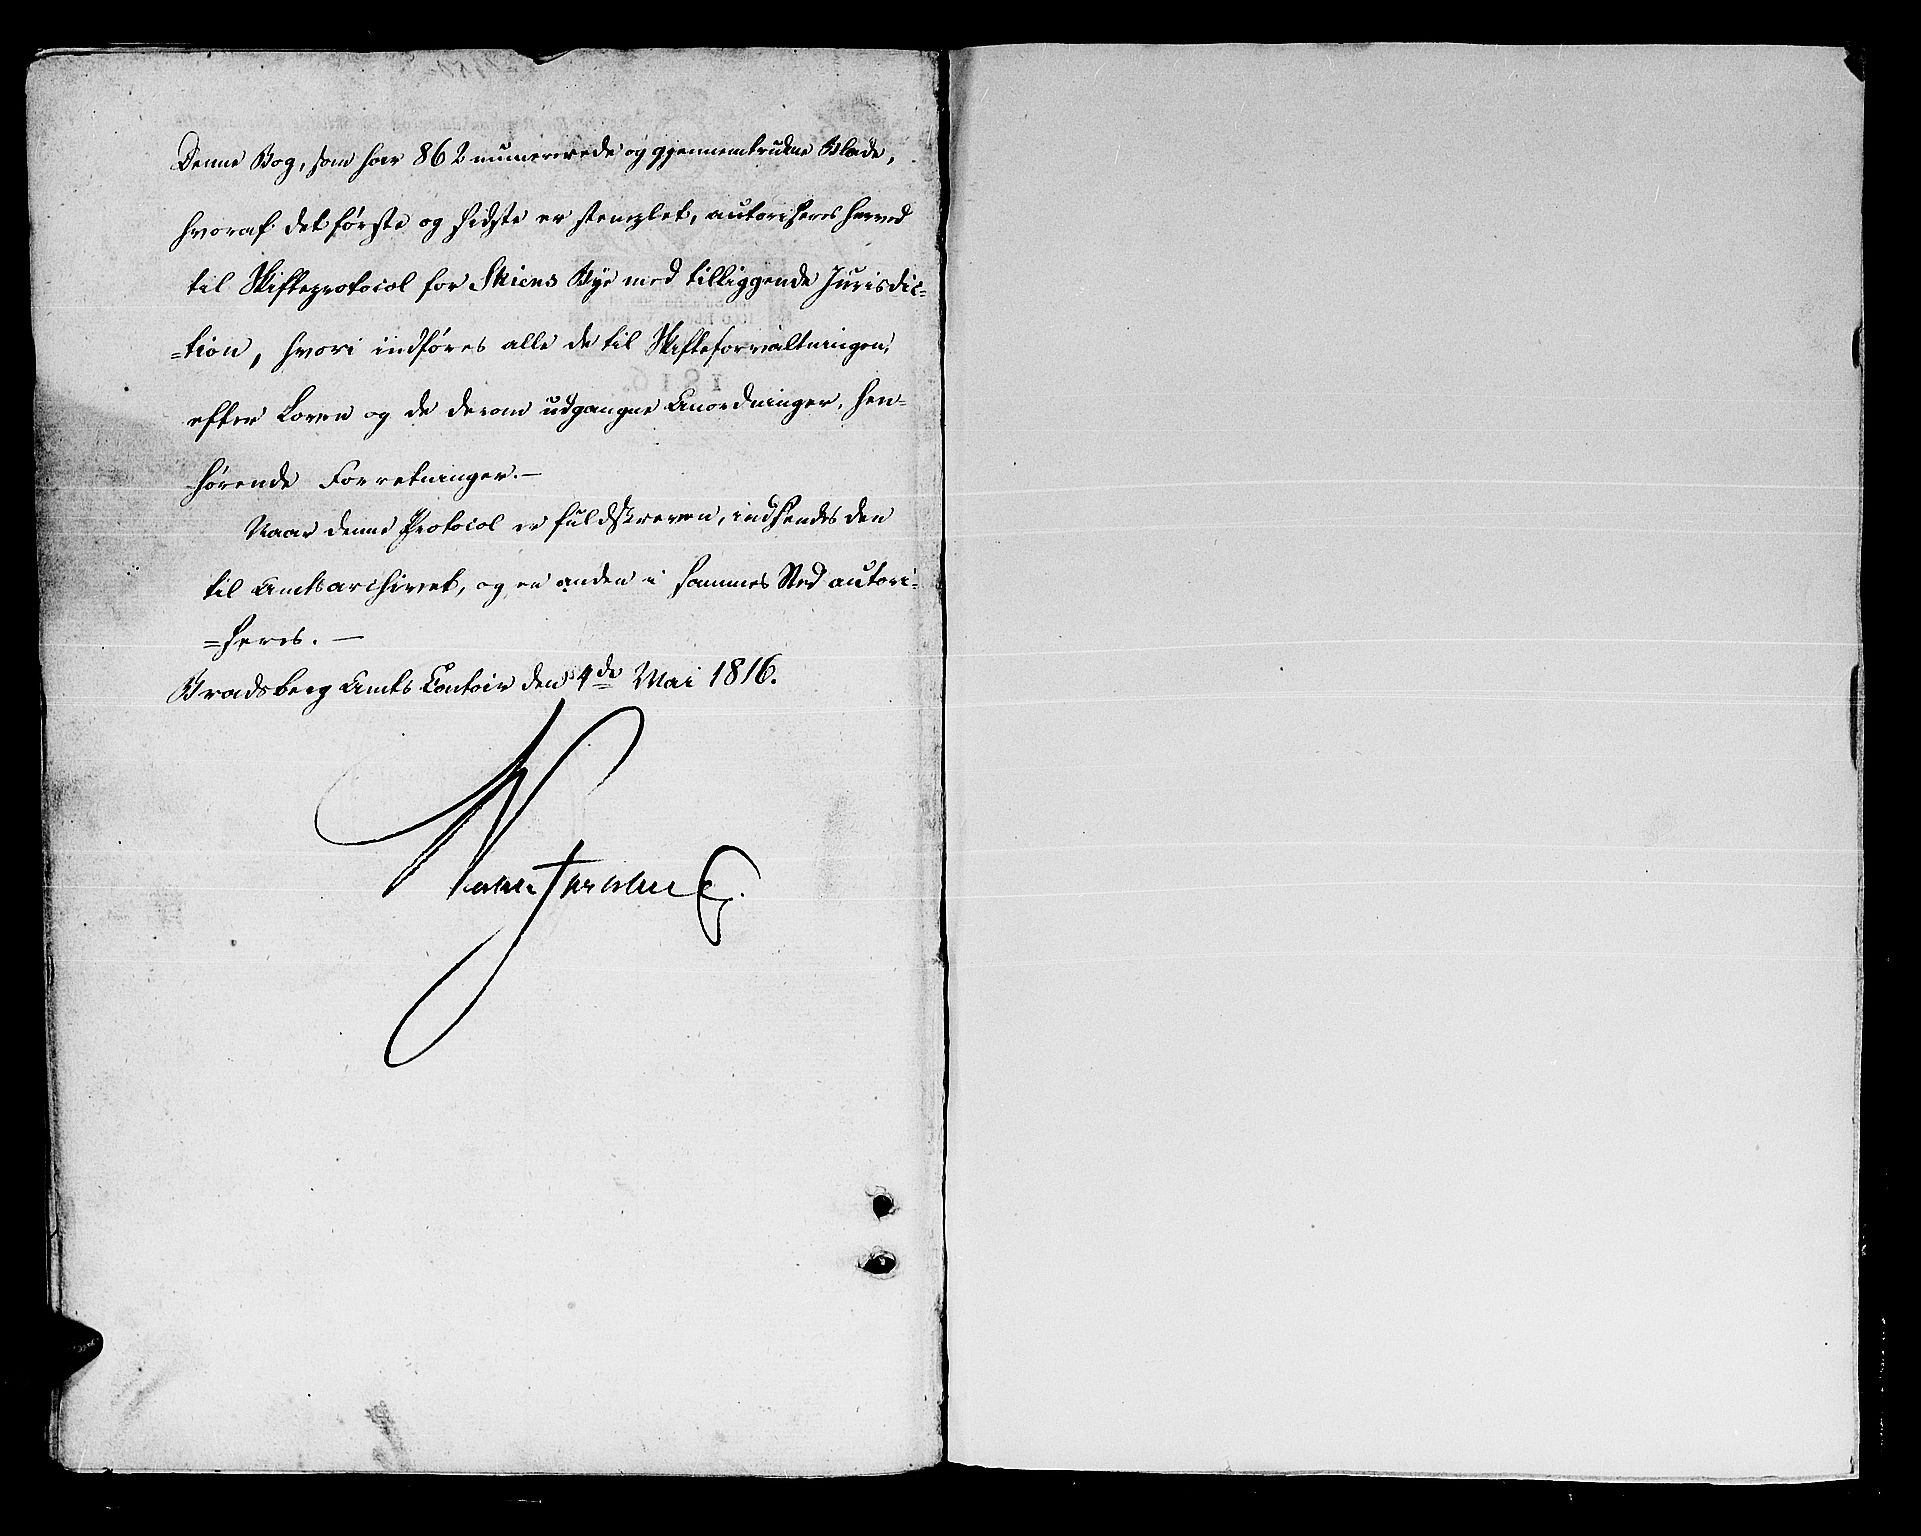 Denne Bog, som har 862 numererede og gjennemtrukne Blade,
hvoraf det første og sidste er stemplet, autoriseres herved
til Skifteprotocol for Skiens Bye med tilliggende Jurisdic=
=tion, hvori indføres alle de til Skifteforvaltningen,
efter Loven og de derom udgangne Anordninger, hen=
hørende Forretninger.—
Naar denne Protocol er fuldskreven, indsendes den
til Amtsarchivet, og en anden i sammes Sted autori=
=seres. —
Bradsberg Amts Contoir den 4de Mai 1816.
1816.